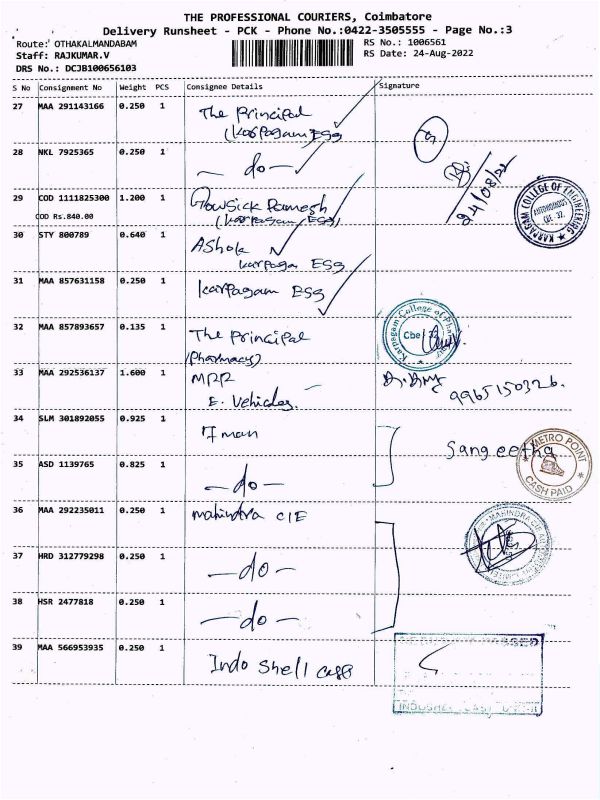 THE PROFESSIONAL COURIERS, Coimbatore
Delivery Runsheet - PCK - Phone No.:0422-3505555 - Page No.:3
Route: OTHAKALMANDABAM
RS No.: 1006561
Staff: RAJKUMAR.V
RS Date: 24-Aug-2022
DRS No.: DCJB100656103
S No Consignment No Weight PCS Consignee Details Signature
27 MAA 291143166 0.250 1 The Principal
(Karpagam Egg
28 NKL 7925365 0.250 1 - do -
24/08/22
29 COD 1111825300 1.200 1 Gowsick Ramesh
COD Rs.840.00 (Karpagam Egg)
KARPAGAM COLLEGE OF ENGINEERING
AUTONOMOUS
CBE - 32.
30 STY 800789 0.640 1 Ashok
Karpaga Egg
31 MAA 857631158 0.250 1 Karpagam Egg
32 MAA 857893657 0.135 1 The Principal
(Pharmacy)
Karpagam College of Pharmacy
Cbe
33 MAA 292536137 1.600 1 MRR
E. Vehicles.
9965150326.
34 SLM 301892055 0.925 1 7 man
Sangeetha
METRO POINT
CASH PAID
35 ASD 1139765 0.825 1 - do -
36 MAA 292235011 0.250 1 mahindra CIE
37 HRD 312779298 0.250 1 - do -
38 HSR 2477818 0.250 1 - do -
39 MAA 566953935 0.250 1 Indo Shell